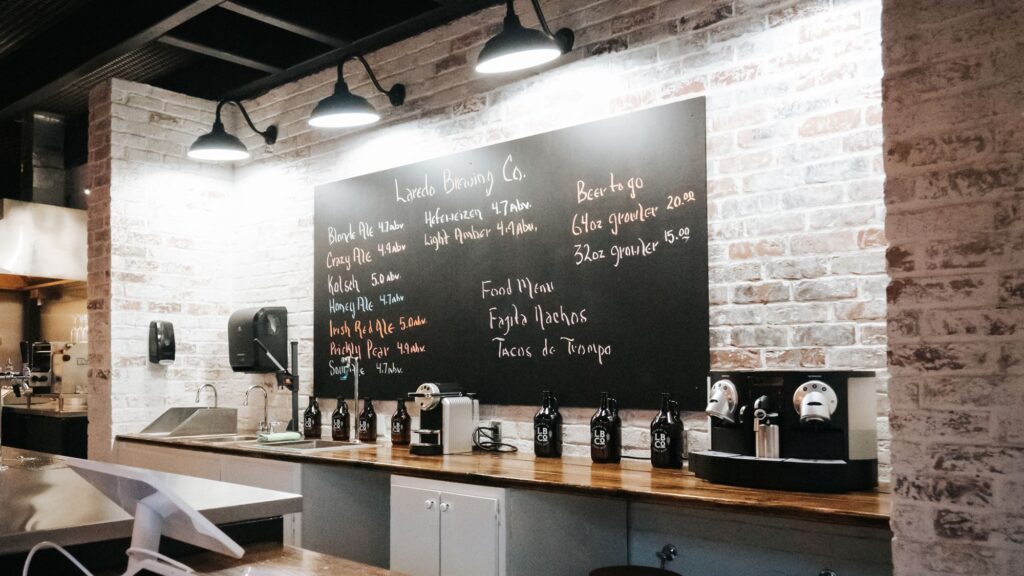 Laredo Brewing Co.
Blonde Ale 4.7abv
Crazy Ale 4.4abv
Kolsch 5.0abv
Honey Ale 4.7abv
Irish Red Ale 5.0abv
Prickly Pear 4.9abv
4.7abv
Hefeweizen 4.7abv.
Light Amber 4.4abv.
Beer to go
64oz growler 20.00
32oz growler 15.00
Food Menu
Fajita Nachos
Tacos de Trompo